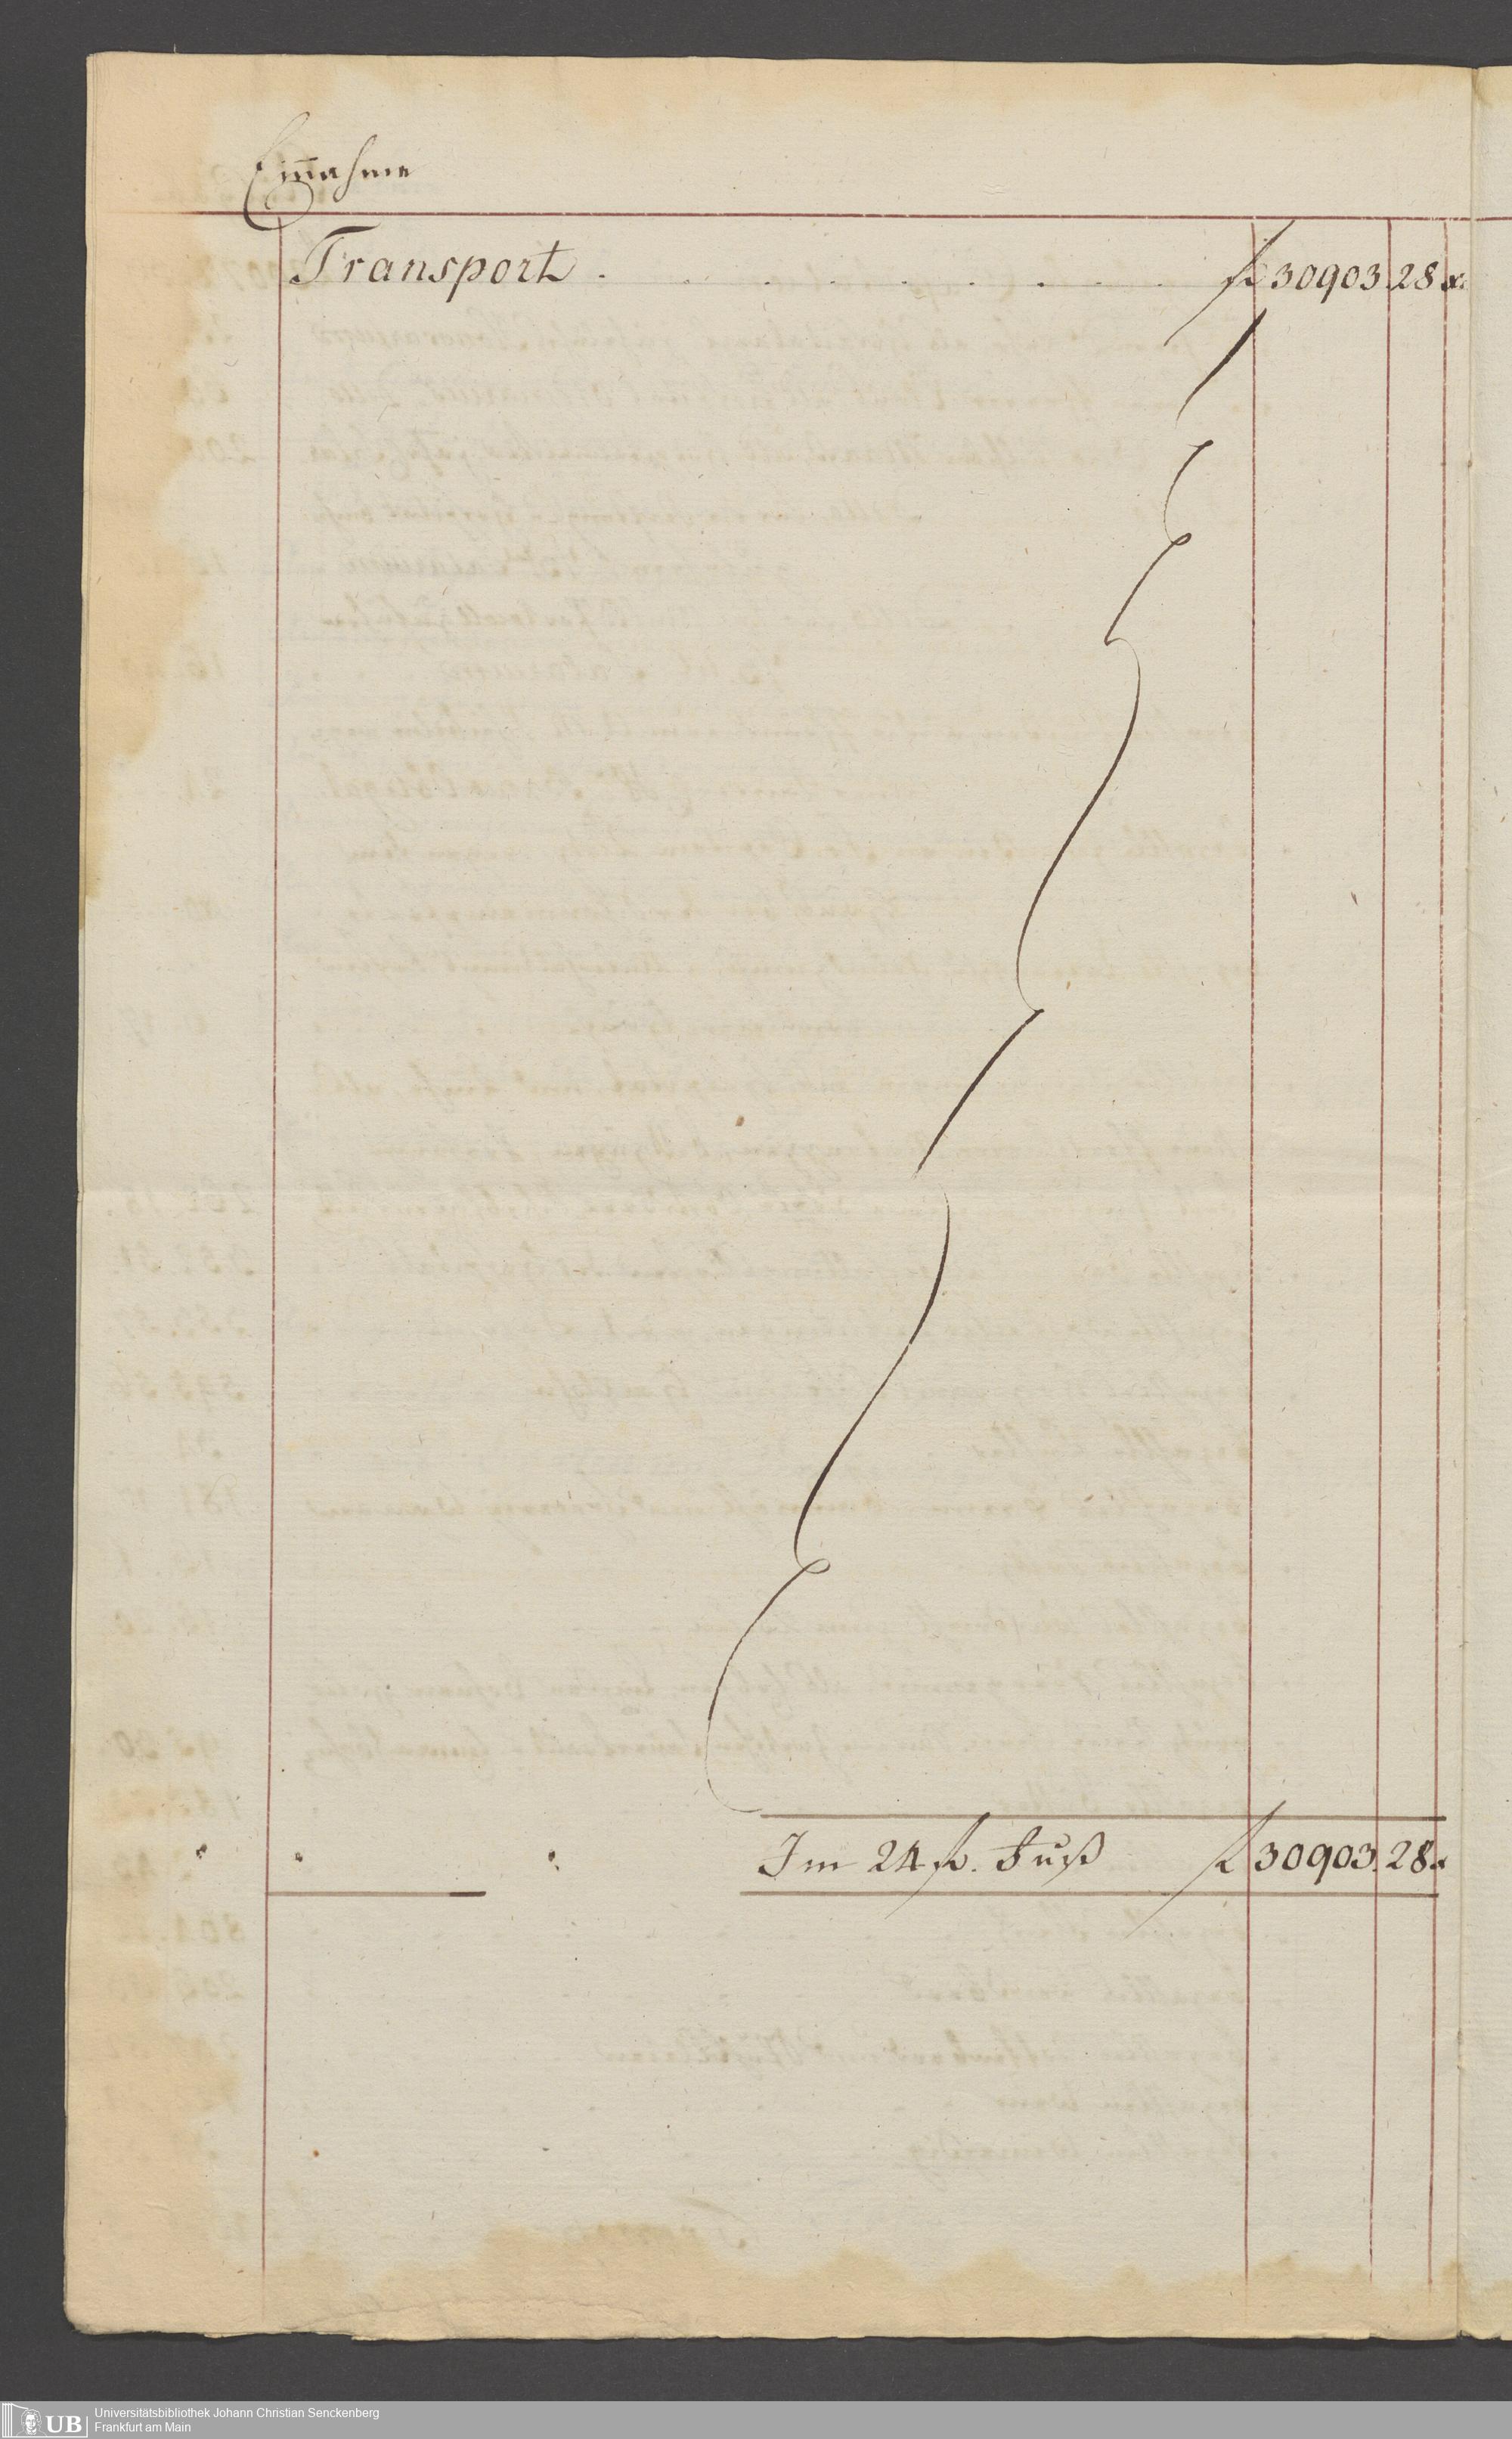 Einnahme
Transport . . . . . . . . f 30903 28 x.
Im 24 f. Fuß f 30903. 28 x
UB
Universitätsbibliothek Johann Christian Senckenberg
Frankfurt am Main